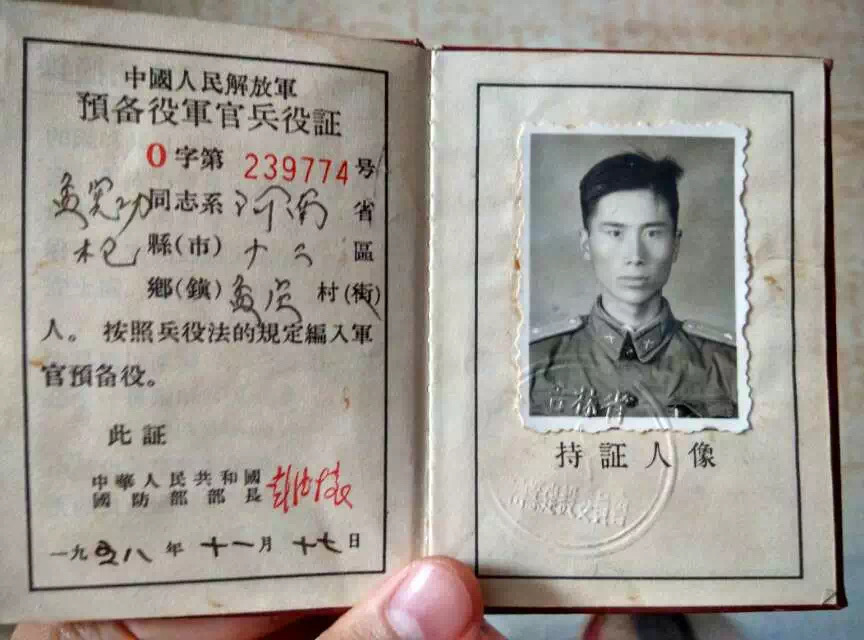 中國人民解放軍
預备役軍官兵役証
O字第 239774 号
孟宪功同志系河南省
杞縣(市) 區
鄉(鎮) 孟 村(街)
人。按照兵役法的規定編入軍
官預备役。
此証
中華人民共和國
國防部部長 彭德懷
一九五八年十一月十七日
吉林省
持証人像